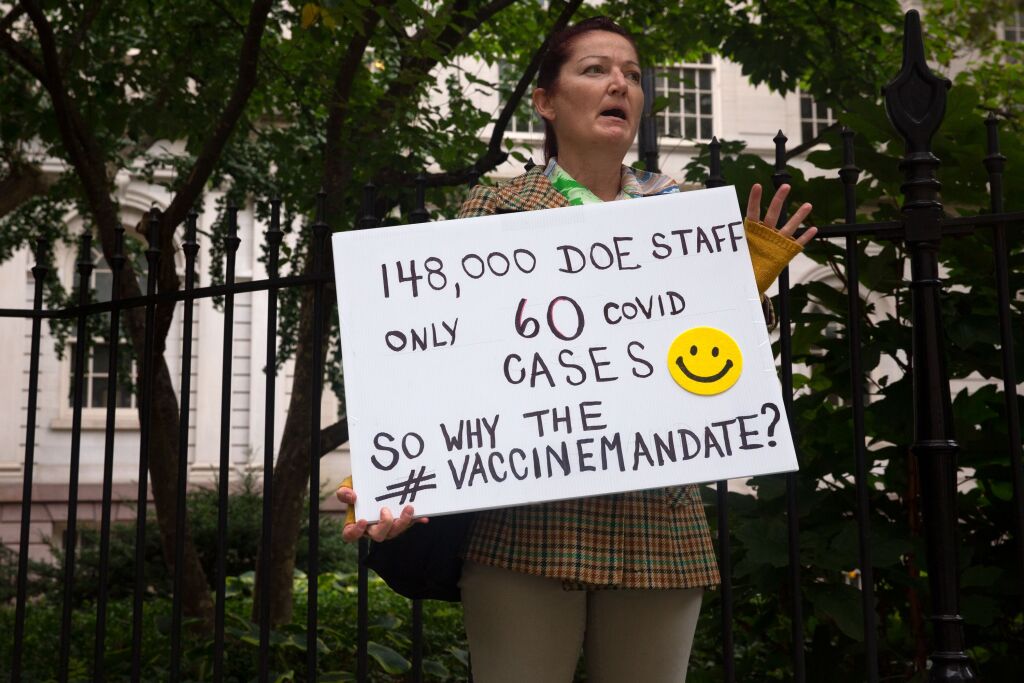 148,000 DOE STAFF
ONLY 60 COVID
CASES
SO WHY THE
# VACCINEMANDATE?